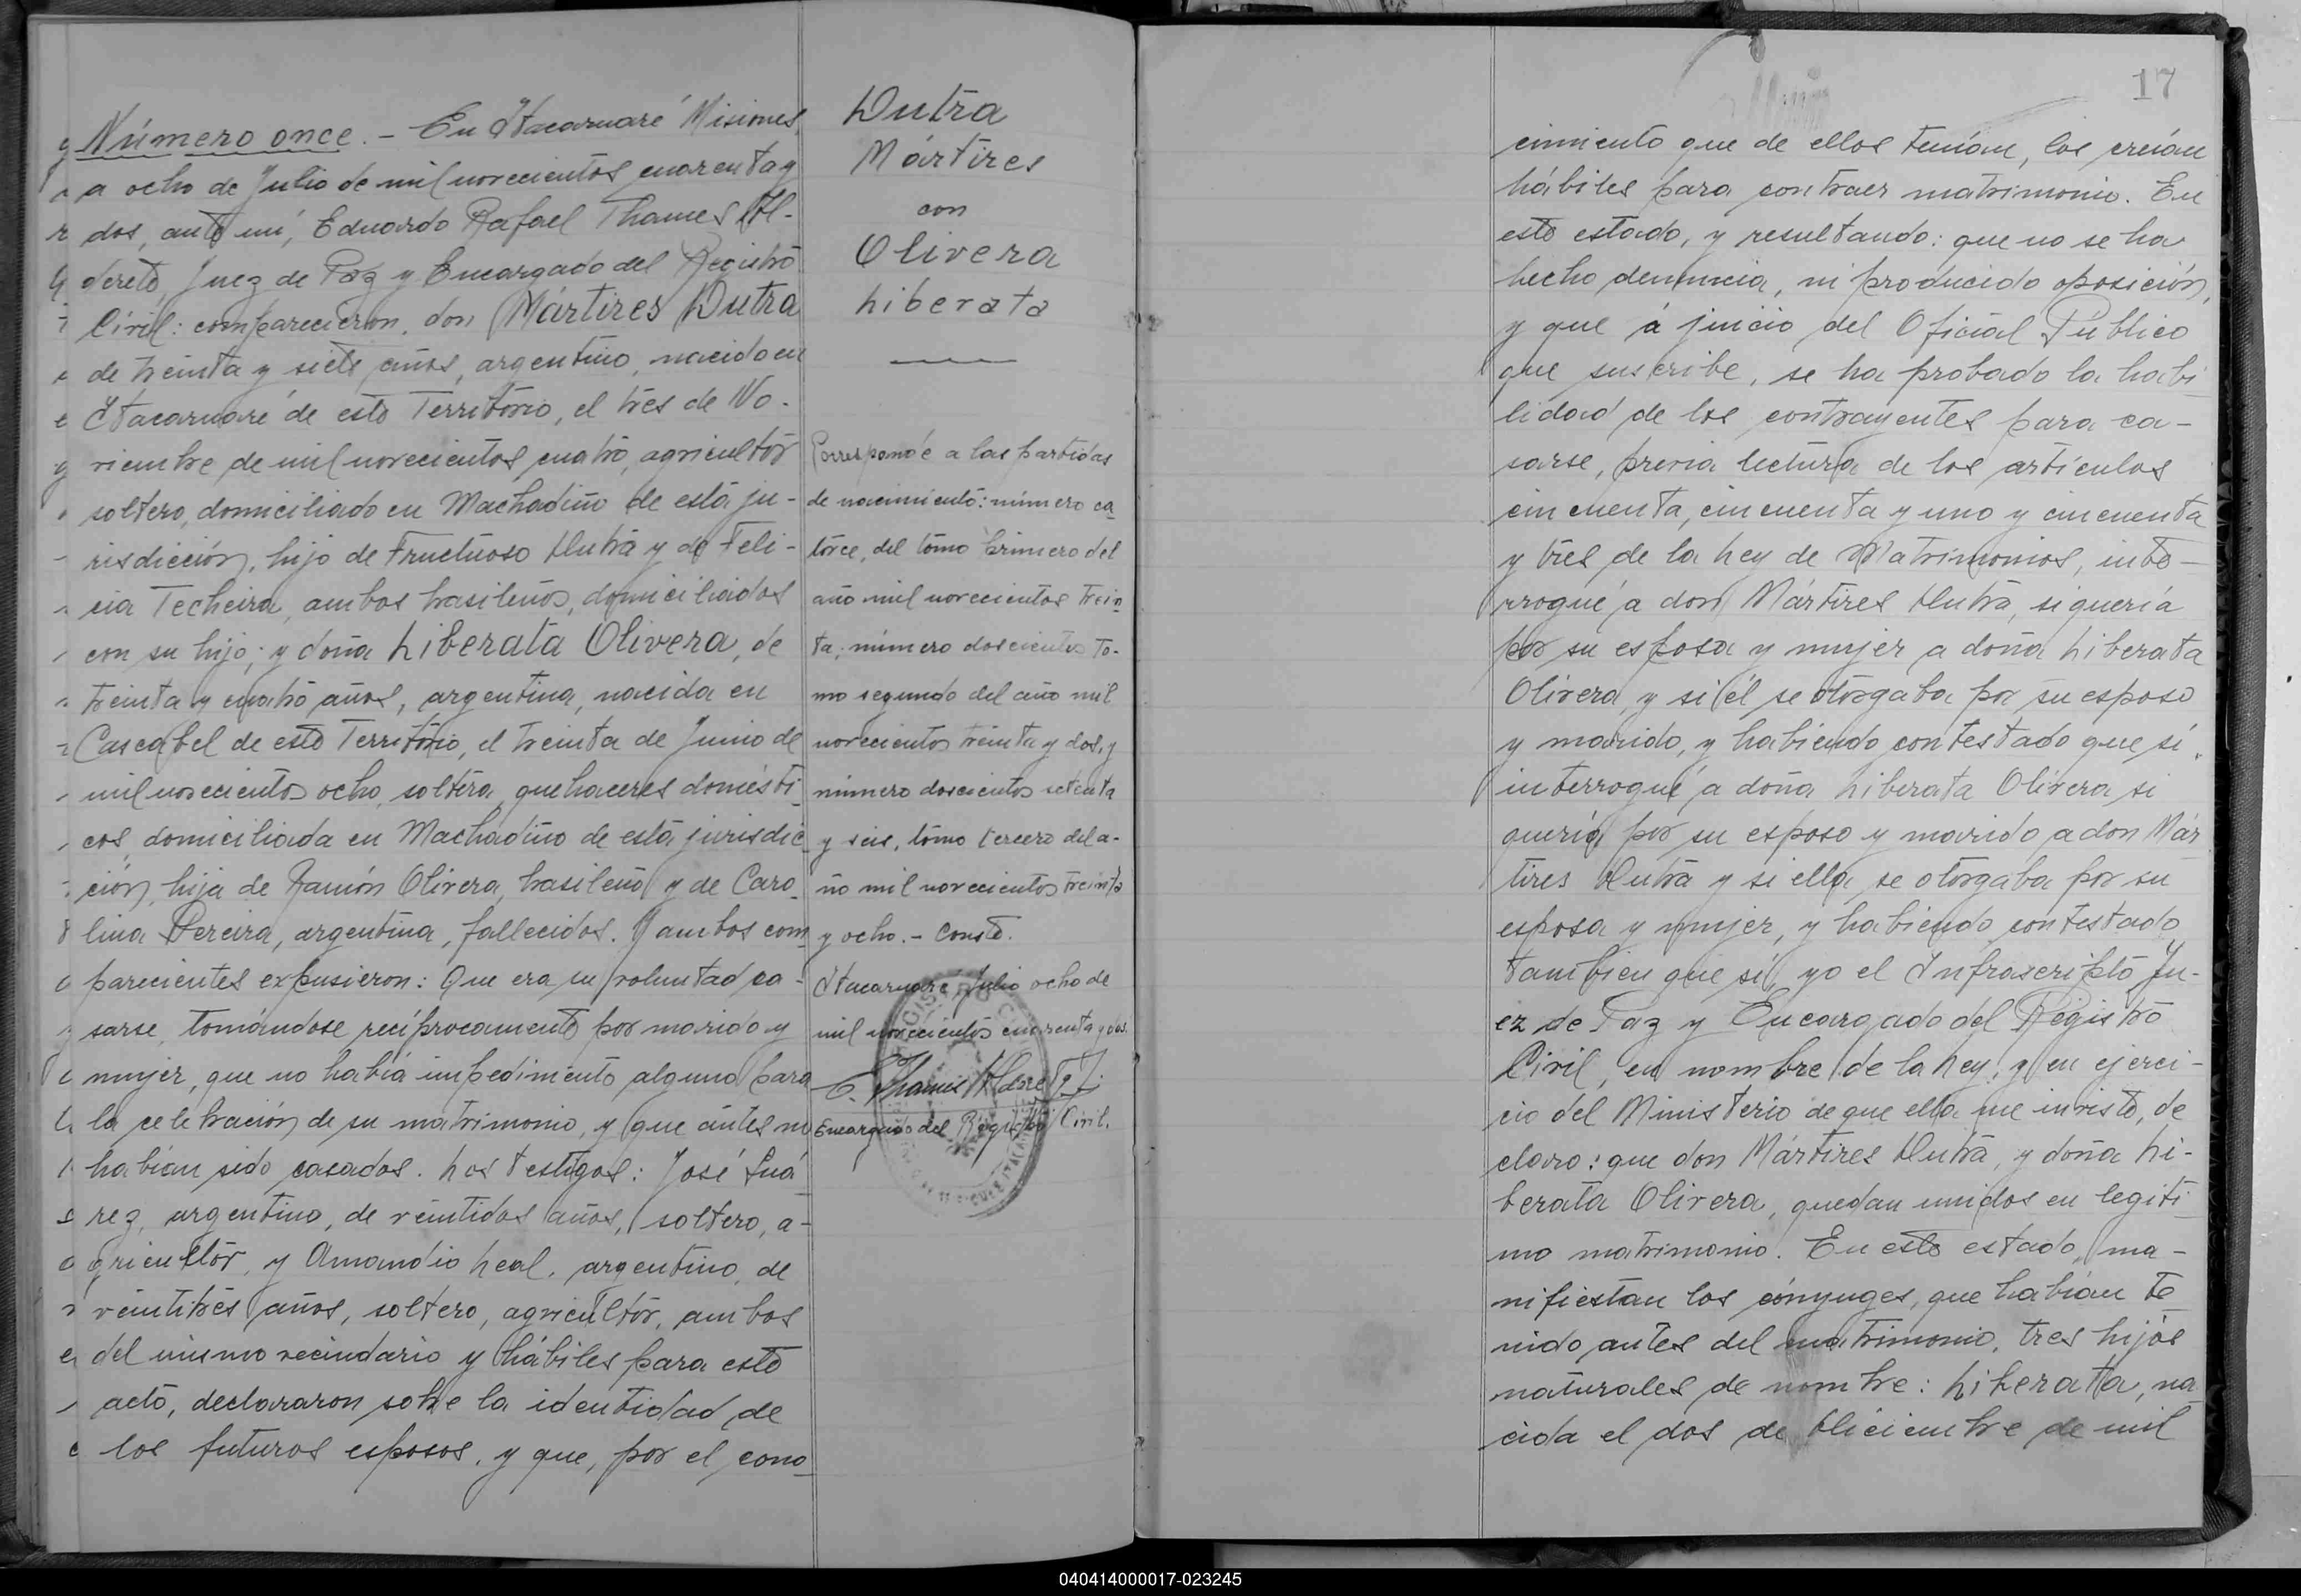 Número once. - En Itacaruaré Misiones
a ocho de Julio de mil novecientos cuarenta y
dos, ante mí, Eduardo Rafael Thames Al-
derete, Juez de Paz y Encargado del Registro
Civil: comparecieron, don Mártires Dutra
de treinta y siete años, argentino, nacido en
Itacaruaré de este Territorio, el tres de No-
viembre de mil novecientos cuatro, agricultor
soltero, domiciliado en Machadiño de esta ju-
risdicción, hijo de Fructuoso Dutra y de Feli-
cia Techeira, ambos brasileños, domiciliados
con su hijo; y doña Liberata Olivera, de
treinta y cuatro años, argentina, nacida en
Cascabel de este Territorio, el treinta de Junio de
mil novecientos ocho, soltera, quehaceres domésti-
cos, domiciliada en Machadiño de esta jurisdic-
ción, hija de Ramón Olivera, brasileño y de Caro-
lina Pereira, argentina, fallecidos. Y ambos com
parecientes expusieron: Que era su voluntad ca-
sarse, tomándose recíprocamente por marido y
mujer, que no había impedimento alguno para
la celebración de su matrimonio, y que ántes no
habían sido casados. Los testigos: José Suá-
rez, argentino, de veintidos años, soltero, a-
gricultor, y Amandio Leal, argentino, de
veintitrés años, soltero, agricultor, ambos
del mismo vecindario y hábiles para este
acto, declararon sobre la identidad de
los futuros esposos, y que, por el cono-
Dutra
Mártires
con
Olivera
Liberata
Corresponde a las partidas
de nacimiento: número ca-
torce, del tomo primero del
año mil novecientos trein-
ta; número doscientos to-
mo segundo del año mil
novecientos treinta y dos, y
número doscientos setenta
y seis, tomo tercero del a-
ño mil novecientos treinta
y ocho. - Conste.
Itacaruaré, Julio ocho de
mil novecientos cuarenta y dos
E. Thames Alderete
Encargado del Registro Civil.
17
cimiento que de ellos tenían, los creían
hábiles para contraer matrimonio. En
este estado, y resultando: que no se ha
hecho denuncia, ni producido oposición,
y que á juicio del Oficial Público
que suscribe, se ha probado la habi-
lidad de los contrayentes para ca-
sarse, previa lectura de los artículos
cincuenta, cincuenta y uno y cincuenta
y tres de la Ley de Matrimonios, inte-
rrogué a don Mártires Dutra, si quería
por su esposa y mujer a doña Liberata
Olivera, y si él se otorgaba por su esposo
y marido, y habiendo contestado que sí,
interrogué a doña Liberata Olivera si
quería por su esposo y marido a don Már
tires Dutra y si ella, se otorgaba por su
esposa y mujer, y habiendo contestado
tambien que sí, yo el Infrascripto Ju-
ez de Paz y Encargado del Registro
Civil, en nombre de la Ley, y en ejerci-
cio del Ministerio de que ella me inviste, de
claro: que don Mártires Dutra, y doña Li-
berata Olivera, quedan unidos en legíti-
mo matrimonio. En este estado, ma-
nifiestan los cónyuges, que habían te-
nido antes del matrimonio, tres hijos
naturales de nombre: Liberata, na
cida el dos de Diciembre de mil
040414000017-023245